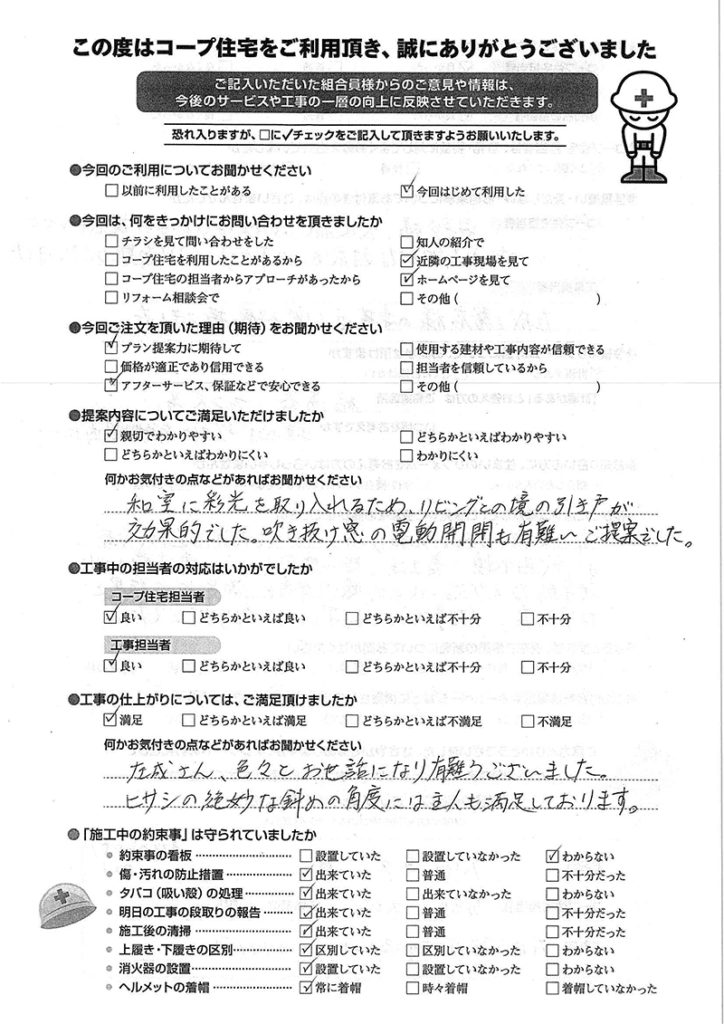 この度はコープ住宅をご利用頂き、誠にありがとうございました
ご記入いただいた組合員様からのご意見や情報は、
今後のサービスや工事の一層の向上に反映させていただきます。
恐れ入りますが、□に✓チェックをご記入して頂きますようお願いいたします。
●今回のご利用についてお聞かせください
□以前に利用したことがある ☑今回はじめて利用した
●今回は、何をきっかけにお問い合わせを頂きましたか
□チラシを見て問い合わせをした □知人の紹介で
□コープ住宅を利用したことがあるから ☑近隣の工事現場を見て
□コープ住宅の担当者からアプローチがあったから ☑ホームページを見て
□リフォーム相談会で □その他( )
●今回ご注文を頂いた理由(期待)をお聞かせください
☑プラン提案力に期待して □使用する建材や工事内容が信頼できる
□価格が適正であり信用できる □担当者を信頼しているから
☑アフターサービス、保証などで安心できる □その他( )
●提案内容についてご満足いただけましたか
☑親切でわかりやすい □どちらかといえばわかりやすい
□どちらかといえばわかりにくい □わかりにくい
何かお気付きの点などがあればお聞かせください
和室に彩光を取り入れるため、リビングとの境の引き戸が
効果的でした。吹き抜け窓の電動開閉も有難いご提案でした。
●工事中の担当者の対応はいかがでしたか
コープ住宅担当者
☑良い □どちらかといえば良い □どちらかといえば不十分 □不十分
工事担当者
☑良い □どちらかといえば良い □どちらかといえば不十分 □不十分
●工事の仕上がりについては、ご満足頂けましたか
☑満足 □どちらかといえば満足 □どちらかといえば不満足 □不満足
何かお気付きの点などがあればお聞かせください
在成さん、色々とお世話になり有難うございました。
ヒサシの絶妙な斜めの角度には主人も満足しております。
●「施工中の約束事」は守られていましたか
約束事の看板 □設置していた □設置していなかった ☑わからない
傷・汚れの防止措置 ☑出来ていた □普通 □不十分だった
タバコ(吸い殻)の処理 ☑出来ていた □出来ていなかった □わからない
明日の工事の段取りの報告 ☑出来ていた □普通 □不十分だった
施工後の清掃 ☑出来ていた □普通 □不十分だった
上履き・下履きの区別 ☑区別していた □区別していなかった □わからない
消火器の設置 ☑設置していた □設置していなかった □わからない
ヘルメットの着帽 ☑常に着帽 □時々着帽 □着帽していなかった